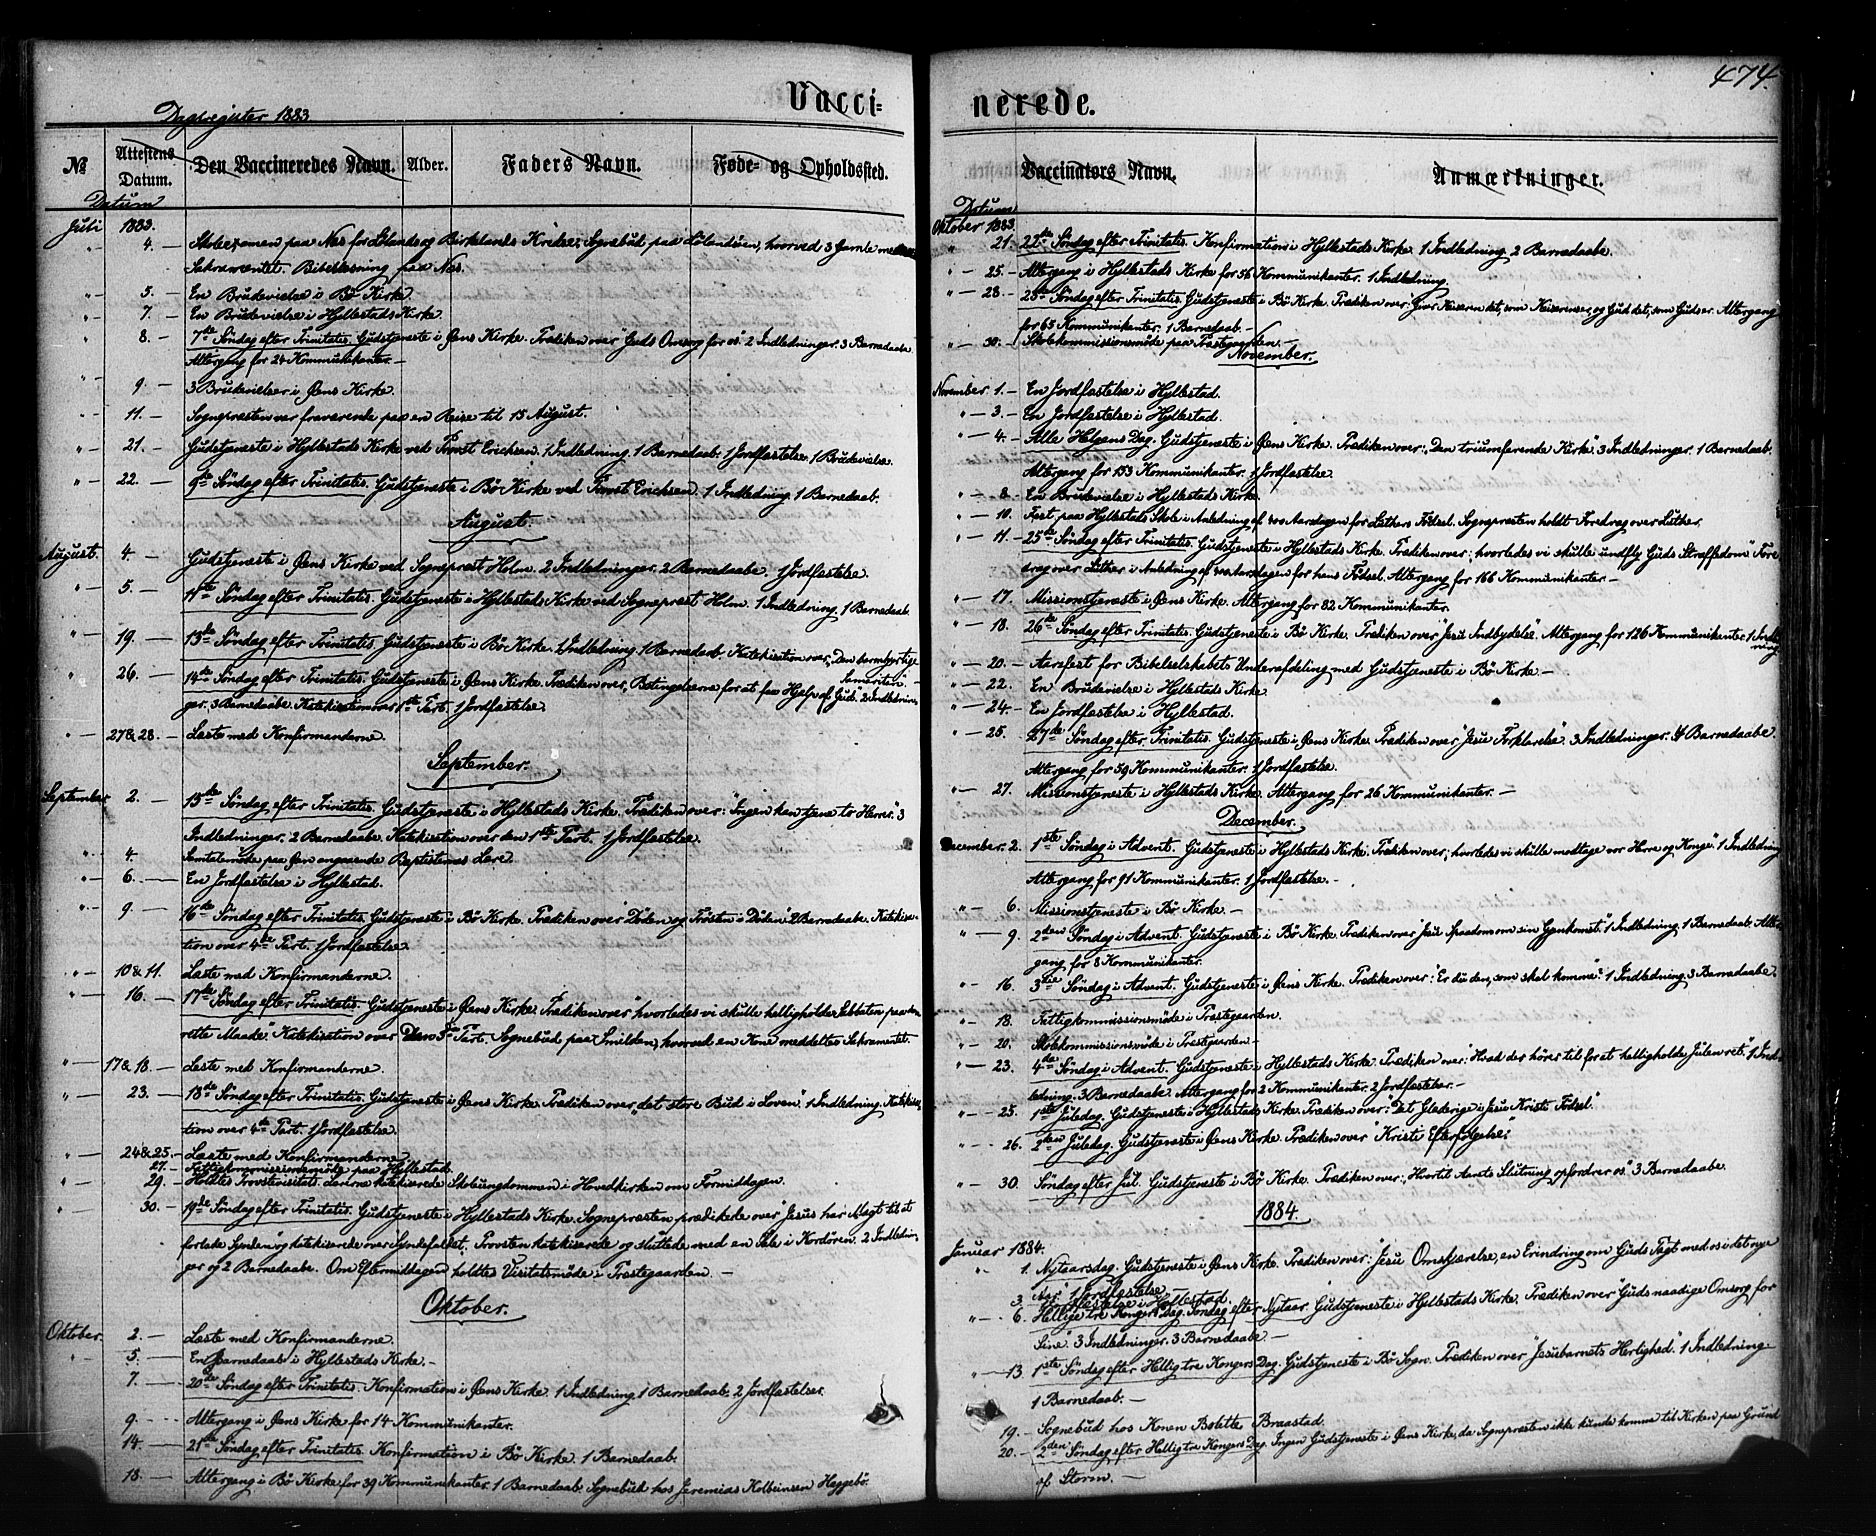 474.
Vacci=
nerede.
Dagsregister 1883
№
Attestens Datum.
Den Vaccineredes Navn.
Alder.
Faders Navn.
Føde- og Opholdssted.
Datum
Juli 1883.
" 4. — Skoleexamen paa Næs for Lølands og Birkelands Kredse, Sognebud paa, hvorved 3 Gamle
Sakramentet. Bibellæsning paa Næs.
" 5. — En Brudevielse i Bø Kirke.
" 7. — En Brudevielse i Hyllestads Kirke.
" 8. — 7de Søndag efter Trinitatis. Gudstjeneste i Øens Kirke. Prædiken over "Guds Omsorg for os". 2 Indledninger. 3 Barnedaabe.
Altergang for 24 Kommunikanter. —
" 9. — 3 Brudevielser i Øens Kirke.
" 11. — Sognepræsten var fraværende paa en Reise til 15 August.
" 21. — Gudstjeneste i Hyllestads Kirke ved Provst Erichsen. 1 Indledning. 1 Barnedaab. 1 Jordfæstelse. 1 Brudevielse.
" 22. — 9de Søndag efter Trinitatis. Gudstjeneste i Bø Kirke ved Provst Erichsen. 1 Indledning. 1 Barnedaab.
August.
August. 4. — Gudstjeneste i Øens Kirke ved Sogneprest Holm. 2 Indledninger. 2 Barnedaabe. 1 Jordfæstelse.
" 5. — 11te Søndag efter Trinitatis. Gudstjeneste i Hyllestads Kirke ved Sogneprest Holm. 1 Indledning. 1 Barnedaab.
" 19. — 13de Søndag efter Trinitatis. Gudstjeneste i Bø Kirke. 1 Indledning. 1 Barnedaab. Katekisation over "Den barmhjertige
Samaritan". —
" 26. — 14de Søndag efter Trinitatis. Gudstjeneste i Øens Kirke. Prædiken over, Betingelserne for at faa Hjælp af Gud". 2 Indlednin-
ger. 3 Barnedaabe. Katekisation over 1ste Part. 1 Jordfæstelse.
" 27 & 28. — Læste med Konfirmanderne.
September.
September 2. — 15de Søndag efter Trinitatis. Gudstjeneste i Hyllestads Kirke. Prædiken over: "Ingen kan tjene to Herrer". 3
Indledninger. 2 Barnedaabe. Katekisation over den 1ste Part. 1 Jordfæstelse.
" 4. — Samtalemøde paa Øen angaaende Baptisternes Lære.
" 6. — En Jordfæstelse i Hyllestad.
" 9. — 16de Søndag efter Trinitatis. Gudstjeneste i Bø Kirke. Prædiken over "Døden og Trøsten i Døden". 2 Barnedaabe. Katekisa-
tion over 4de Part. 1 Jordfæstelse.
" 10 & 11. Læste med Konfirmanderne.
" 16. — 17de Søndag efter Trinitatis. Gudstjeneste i Øens Kirke. Prædiken over "hvorledes vi skulle helligholde Sabbaten paa
rette Maade". Katekisation over Part. Sognebud paa, hvorved en Kone meddeltes Sakramentet.
" 17 & 18. — Læste med Konfirmanderne.
" 23. — 18de Søndag efter Trinitatis. Gudstjeneste i Øens Kirke. Prædiken over, det store Bud i Loven". 1 Indledning. Katekisa-
tion over 4de Part. 1 Jordfæstelse.
" 24 & 25. — Læste med Konfirmanderne.
27. — Fattigkommissionsmøde paa Hyllestad.
" 29. — Holdtes Provstevisitats. katekiserede Skoleungdommen i Hovedkirken om Formiddagen.
" 30. — 19de Søndag efter Trinitatis. Gudstjeneste i Hyllestads Kirke. Sognepræsten prædikede over "Jesus har Magt til at
forlade Synden" og katekiserede over Syndefaldet. Provsten katekiserede og sluttede med en Tale i Kordøren. 2 Indlednin-
ger og 2 Barnedaabe. Om Eftermiddagen holdtes Visitatsmøde i Præstegaarden. —
Oktober.
Oktober. 2. — Læste med Konfirmanderne.
" 5. — En Barnedaab i Hyllestads Kirke. —
7. — 20de Søndag efter Trinitatis. Konfirmation i Øens Kirke. 1 Indledning. 1 Barnedaab. 2 Jordfæstelser.
9. — Altergang i Øens Kirke for 14 Kommunikanter.
14. — 21de Søndag efter Trinitatis. Konfirmation i Bø Kirke. 1 Barnedaab.
18. — Altergang i Bø Kirke for 39 Kommunikanter. 1 Barnedaab. Sognebud hos Jeremias Kolbeinsen Heggebø.
Vaccinators Navn.
Anmærkninger.
Datum
Oktober 1883.
" 21. 22de Søndag efter Trinitatis. Konfirmation i Hyllestads Kirke. 1 Indledning. 2 Barnedaabe.
" — 25. — Altergang i Hyllestads Kirke for 56 Kommunikanter. 1 Indledning.
" — 28. — 23de Søndag efter Trinitatis. Gudstjeneste i Bø Kirke. Prædiken over: Giver Keiseren det, som Keiserens er, og Gud det, som Guds er. Altergang
for 65 Kommunikanter. 1 Barnedaab. —
" — 30. — Skolekommissionsmøde paa Præstegaarden. —
November.
November 1. — En Jordfæstelse i Hyllestad.
" — 3. — En Jordfæstelse i Hyllestad.
" — 4. — Alle Helgens Dag. Gudstjeneste i Øens Kirke. Prædiken over: "Den triumferende Kirke". 3 Indledninger. 1 Barnedaab.
Altergang for 153 Kommunikanter. 1 Jordfæstelse.
" — 8. — En Brudevielse i Hyllestads Kirke.
" — 10. Fest paa Hyllestads Skole i Anledning af 400 Aarsdagen for Luthers Fødsel. Sognepræsten holdt Foredrag over Luther.
" — 11. — 25de Søndag efter Trinitatis. Gudstjeneste i Hyllestads Kirke. Prædiken over: "hvorledes vi skulle undfly Guds Straffedom". Fore-
drag over Luther i Anledning af 400 Aarsdagen for hans Fødsel. Altergang for 166 Kommunikanter. —
" — 17. Missionstjeneste i Øens Kirke. Altergang for 82 Kommunikanter.
" — 18. 26de Søndag efter Trinitatis. Gudstjeneste i Bø Kirke. Prædiken over "Jesu Indbydelse". Altergang for 126 Kommunikanter. 1 Indled-
ning.
" — 20. — Aarsfest for Bibelselskabets Underafdeling med Gudstjeneste i Bø Kirke. —
" — 22. En Brudevielse i Hyllestads Kirke.
" — 24. — En Jordfæstelse i Hyllestad.
" — 25. 27de Søndag efter Trinitatis. Gudstjeneste i Øens Kirke. Prædiken over "Jesu Forklarelse". 3 Indledninger. 4 Barnedaabe.
Altergang for 59 Kommunikanter. 1 Jordfæstelse.
" — 27. Missionstjeneste i Hyllestads Kirke. Altergang for 26 Kommunikanter. —
December.
December. 2. 1ste Søndag i Advent. Gudstjeneste i Hyllestads Kirke. Prædiken over: "hvorledes vi skulle modtage vor Herre og Konge". 1 Indledning.
Altergang for 91 Kommunikanter. 1 Jordfæstelse. —
" — 6. Missionstjeneste i Bø Kirke. —
" — 9. 2den Søndag i Advent. Gudstjeneste i Bø Kirke. Prædiken over "Jesu Spaadom om sin Gjenkomst". 1 Indledning. 1 Barnedaab. Alter-
gang for 8 Kommunikanter.
" — 16. 3die Søndag i Advent. Gudstjeneste i Øens Kirke. Prædiken over: "Er du den, som skal komme?". 1 Indledning. 3 Barnedaabe.
" — 18. Fattigkommissionsmøde i Præstegaarden.
" — 20. Skolekommissionsmøde i Præstegaarden. —
" — 23. 4de Søndag i Advent. Gudstjeneste i Hyllestads Kirke. Prædiken over: "Hvad der hører til for at helligholde Julen ret". 1 Ind-
ledning. 3 Barnedaabe. Altergang for 2 Kommunikanter. 2 Jordfæstelser. —
" — 25. 1ste Juledag. Gudstjeneste i Hyllestads Kirke. Prædiken over: "Det Glædelige i Jesu Kristi Fødsel".
" — 26. 2den Juledag. Gudstjeneste i Øens Kirke. Prædiken over "Kristi Efterfølgelse".
" — 30. Søndag efter Jul. Gudstjeneste i Bø Kirke. Prædiken over: "Hvortil Aarets Slutning opfordrer os". 3 Barnedaabe.
1884.
Januar 1884.
" 1. Nytaarsdag. Gudstjeneste i Øens Kirke. Prædiken over: "Jesu Omskjærelse, en Erindring om Guds Pagt med os i det nye
Aar". 1 Jordfæstelse.
3. Jordfæstelse i Hyllestad.
" — 6. Hellige tre Kongers Dag. Søndag efter Nytaar. Gudstjeneste i Hyllestads Kirke. Prædiken over "Guds naadige Omsorg for
Sine". 3 Indledninger. 3 Barnedaabe. —
" — 13. 1ste Søndag efter Hellig tre Kongers Dag. Gudstjeneste i Bø Sogn. Prædiken over "Jesusbarnets Herlighed". 1 Indledning.
1 Barnedaab.
19. — Sognebud hos Konen Bolette Braastad.
20. — 2den Søndag efter Hellig tre Kongers Dag. Ingen Gudstjeneste i Øens Kirke, da Sognepræsten ikke kunde komme til Kirken paa Grund
af Storm. —